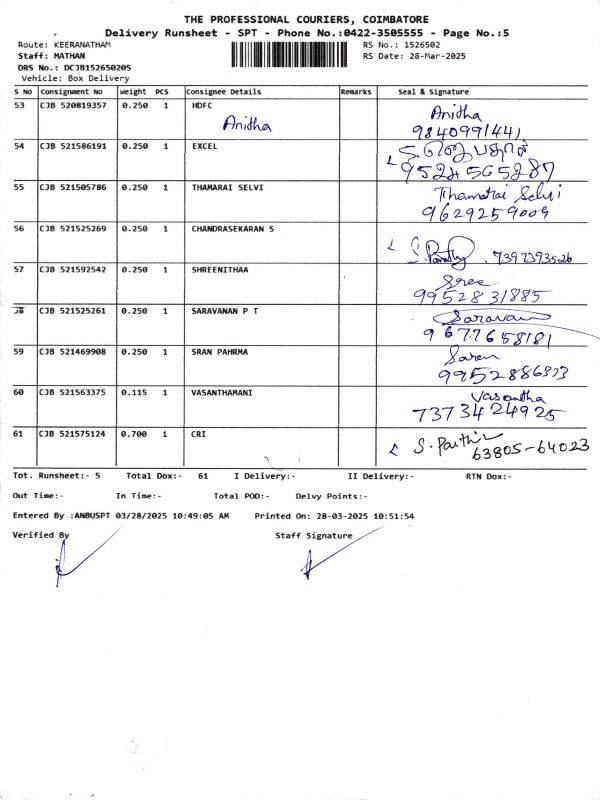 THE PROFESSIONAL COURIERS, COIMBATORE
Delivery Runsheet - SPT - Phone No.:0422-3505555 - Page No.:5
Route: KEERANATHAM RS No.: 1526502
Staff: MATHAN RS Date: 28-Mar-2025
DRS No.: DCJB152650205
Vehicle: Box Delivery
S No Consignment No Weight PCS Consignee Details Remarks Seal & Signature
53 CJB 520819357 0.250 1 HDFC Anitha
Anitha 9840991441
54 CJB 521586191 0.250 1 EXCEL
9524565287
55 CJB 521505786 0.250 1 THAMARAI SELVI Thamarai Selvi
9629259009
56 CJB 521525269 0.250 1 CHANDRASEKARAN S
7397393526
57 CJB 521592542 0.250 1 SHREENITHAA Sree
9952831885
58 CJB 521525261 0.250 1 SARAVANAN P T Saravan
9677658181
59 CJB 521469908 0.250 1 SRAN PAHRMA Saren
9952886373
60 CJB 521563375 0.115 1 VASANTHAMANI Vasantha
7373424925
61 CJB 521575124 0.700 1 CRI S.
63805-64023
Tot. Runsheet:- 5 Total Dox:- 61 I Delivery:- II Delivery:- RTN Dox:-
Out Time:- In Time:- Total POD:- Delvy Points:-
Entered By :ANBUSPT 03/28/2025 10:49:05 AM Printed On: 28-03-2025 10:51:54
Verified By Staff Signature